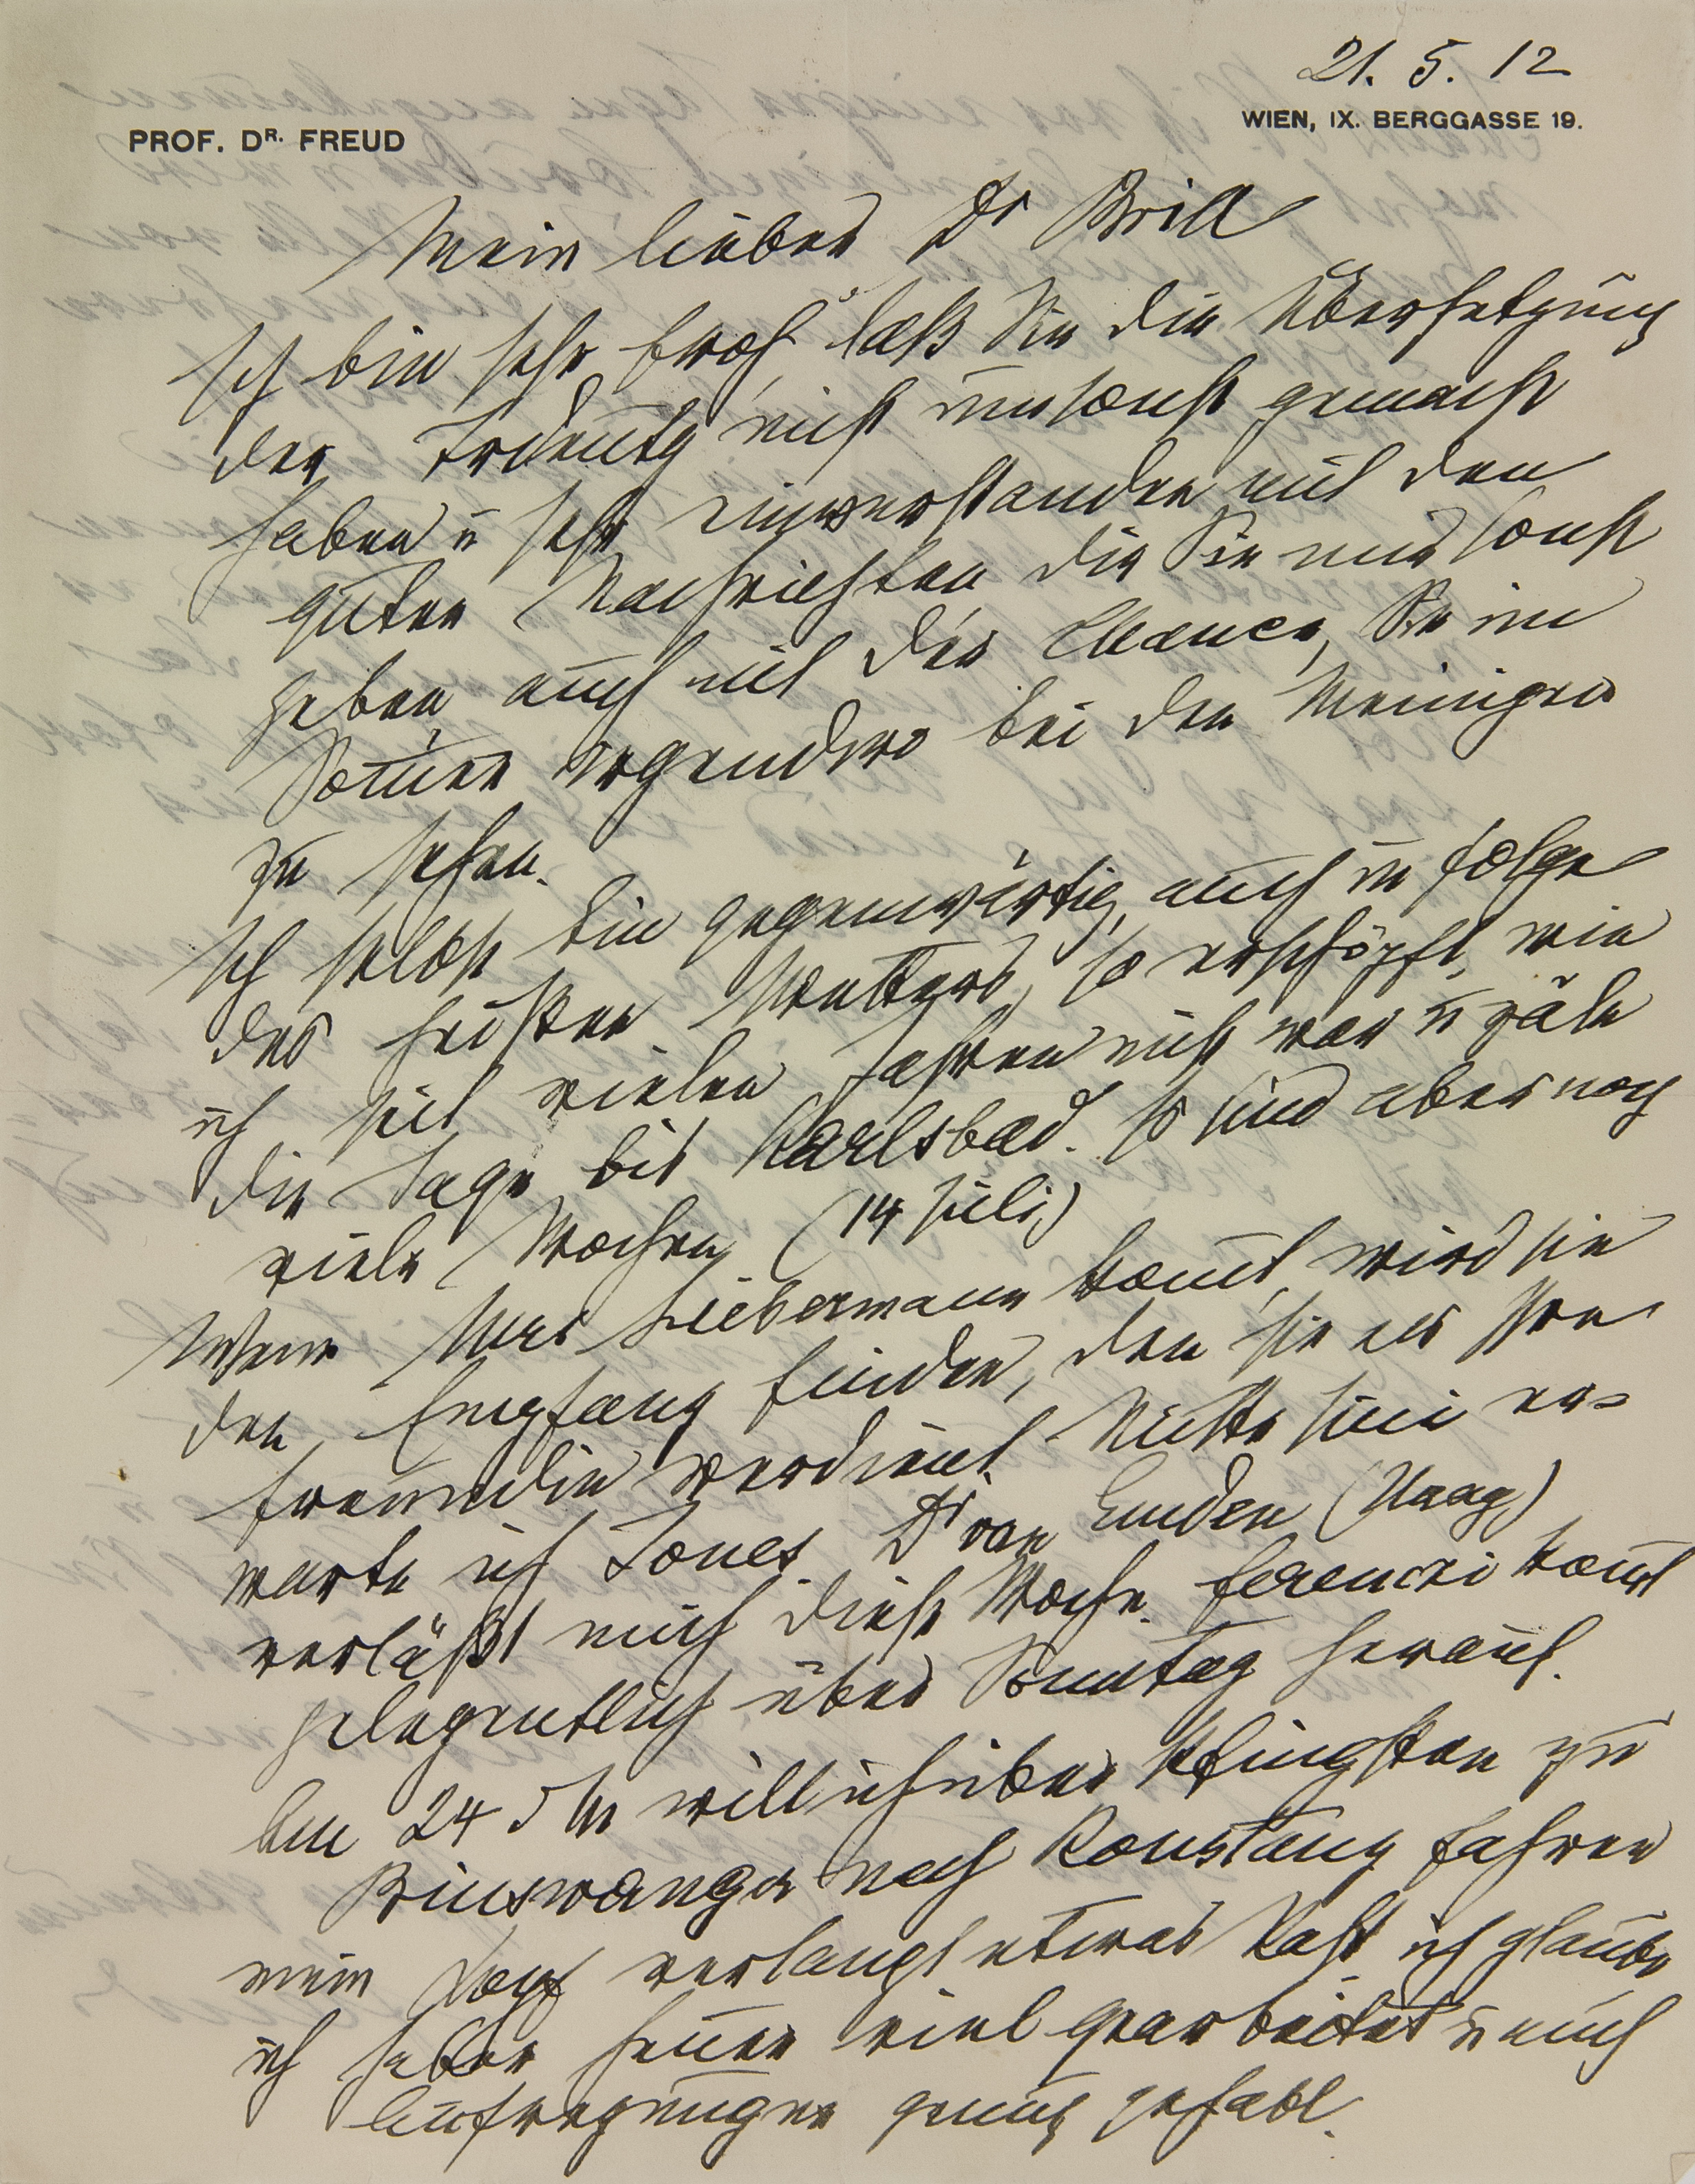 21. 5. 12
PROF. DR. FREUD
WIEN, IX. BERGGASSE 19.
Mein lieber Dr Brill
Ich bin sehr froh, daß Sie die Übersetzung
der Trdeutg nicht umsonst gemacht
haben u sehr einverstanden mit den
guten Nachrichten die Sie mir sonst
geben, auch mit der Chance, Sie im
Som̄er irgendwo bei den Meinigen
zu sehen.
Ich selbst bin gegenwärtig, auch in folge
des heißen Wetters, so erschöpft, wie
ich seit vielen Jahren nicht war u zäle
die Tage bis Karlsbad. Es sind aber noch
viele Wochen (14 Juli)
Wenn Mrs Liebermann kom̄t, wird sie
den Empfang finden, den sie als Ihre
freundin verdient. Mitte Juni er=
warte ich Jones. Dr van Emden (Haag)
verläßt mich diese Woche. ferenczi kom̄t
gelegentlich über Sonntag herauf.
Am 24 d M will ich über Pfingsten zu
Binswanger nach Konstanz fahren
mein Kopf verlangt etwas Rast ich glaube
ich habe heuer viel gearbeitet u auch
Aufregungen genug gehabt.